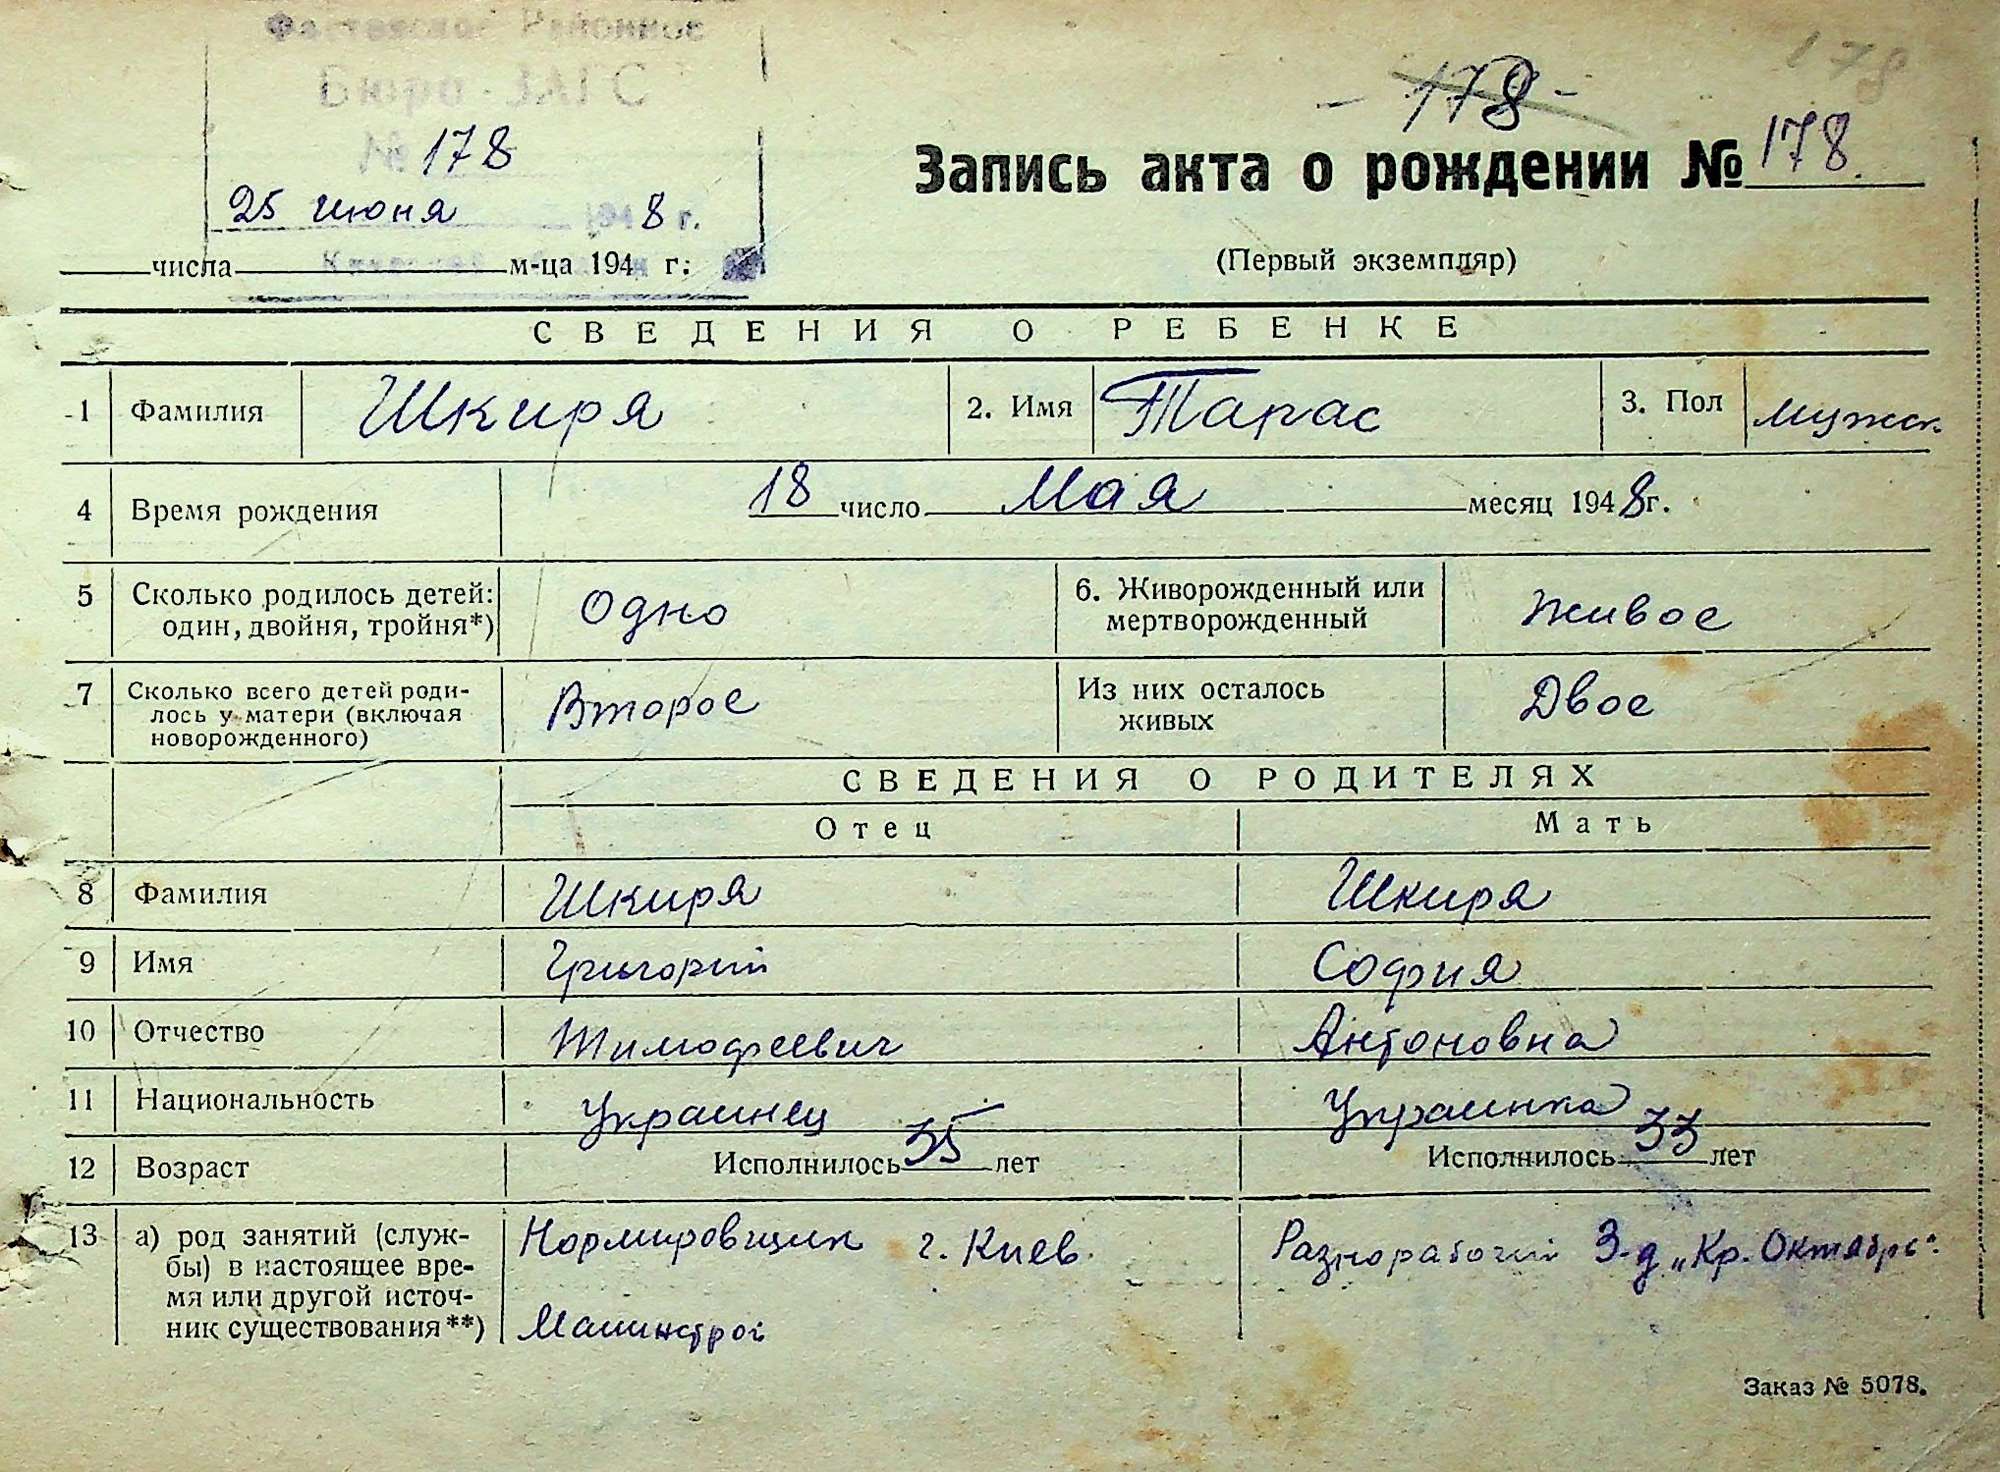 Фастовское Районное
Бюро ЗАГС
№ 178
25 июня 1948 г.
числа м-ца 194 г:
178
- 178 -
Запись акта о рождении № 178.
(Первый экземпляр)
СВЕДЕНИЯ О РЕБЕНКЕ
1 Фамилия Шкиря 2. Имя Тарас 3. Пол мужск.
4 Время рождения 18 число Мая месяц 1948 г.
5 Сколько родилось детей: один, двойня, тройня*) Одно 6. Живорожденный или мертворожденный Живое
7 Сколько всего детей роди-
лось у матери (включая
новорожденного) Второе Из них осталось живых Двое
СВЕДЕНИЯ О РОДИТЕЛЯХ
Отец Мать
8 Фамилия Шкиря Шкиря
9 Имя Григорий София
10 Отчество Тимофеевич Антоновна
11 Национальность Украинец Украинка
12 Возраст Исполнилось 35 лет Исполнилось 33 лет
13 а) род занятий (служ-
бы) в настоящее вре-
мя или другой источ-
ник существования**) Нормировщик г. Киев. Разнорабочий З-д „Кр. Октябрь".
Машинстрой
Заказ № 5078.